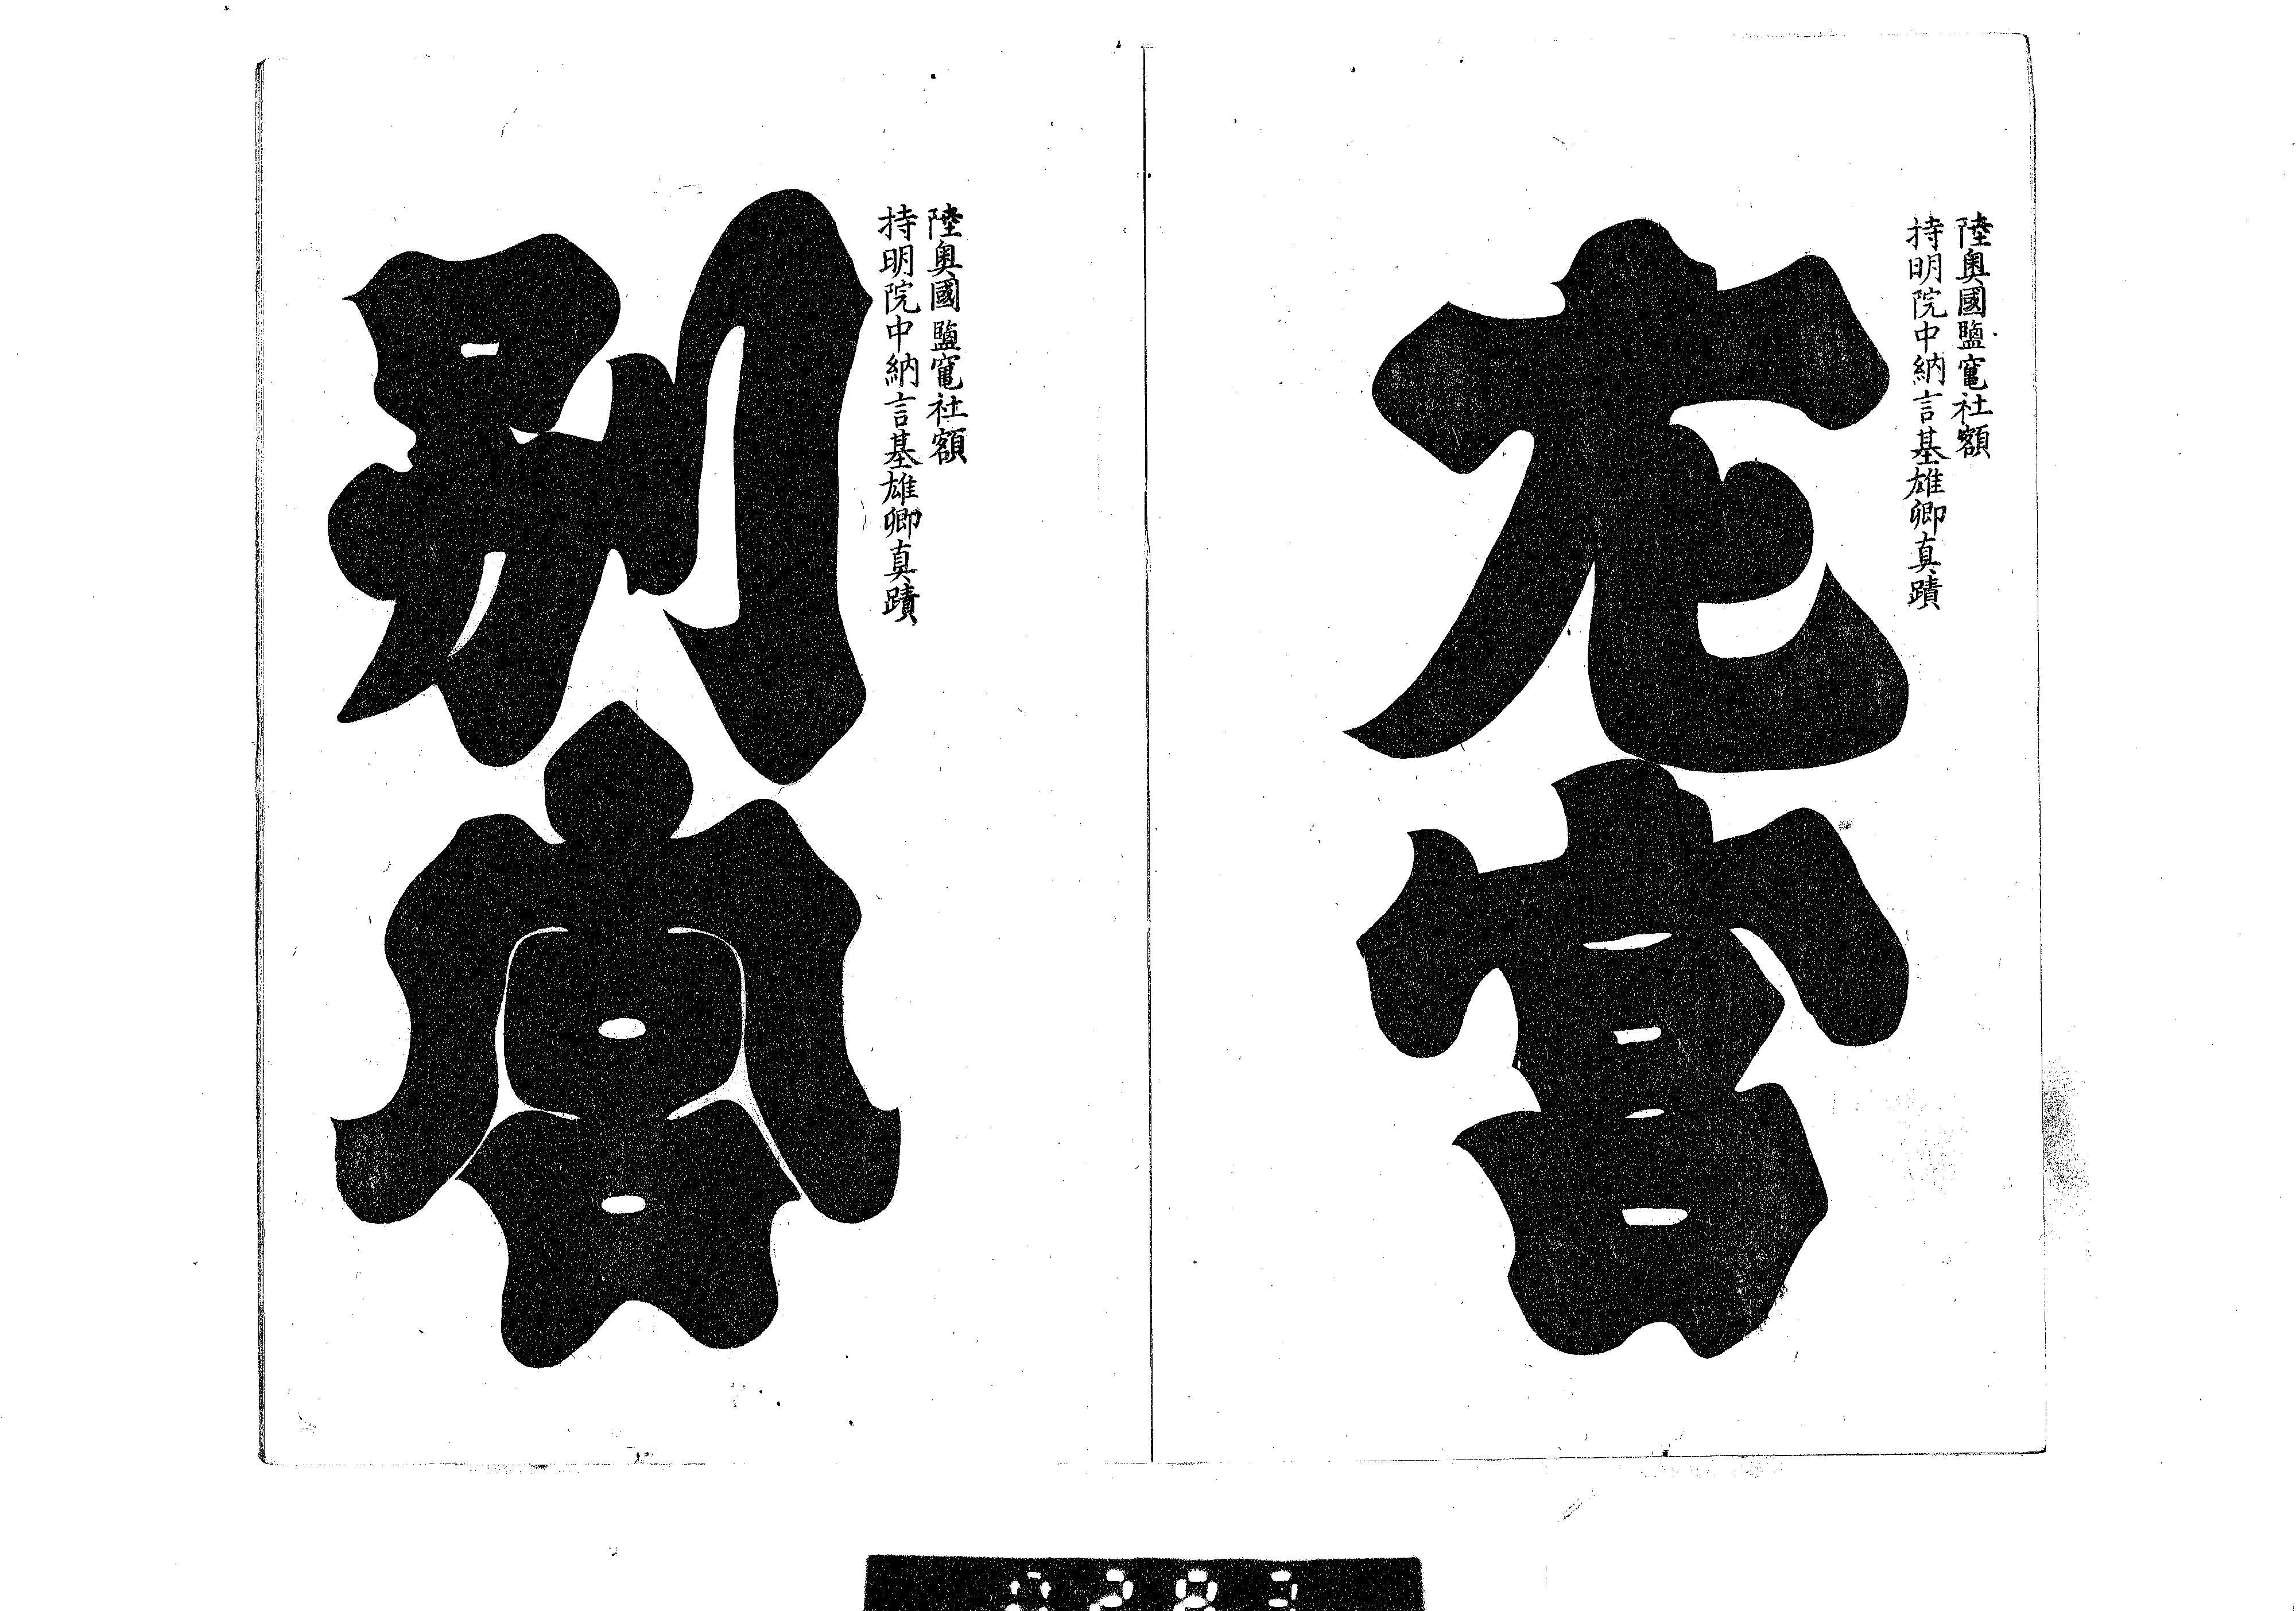 陸奥國鹽竃社額
持明院中納言基雄卿真蹟
左宮
陸奥國鹽竃社額
持明院中納言基雄卿真蹟
別宮